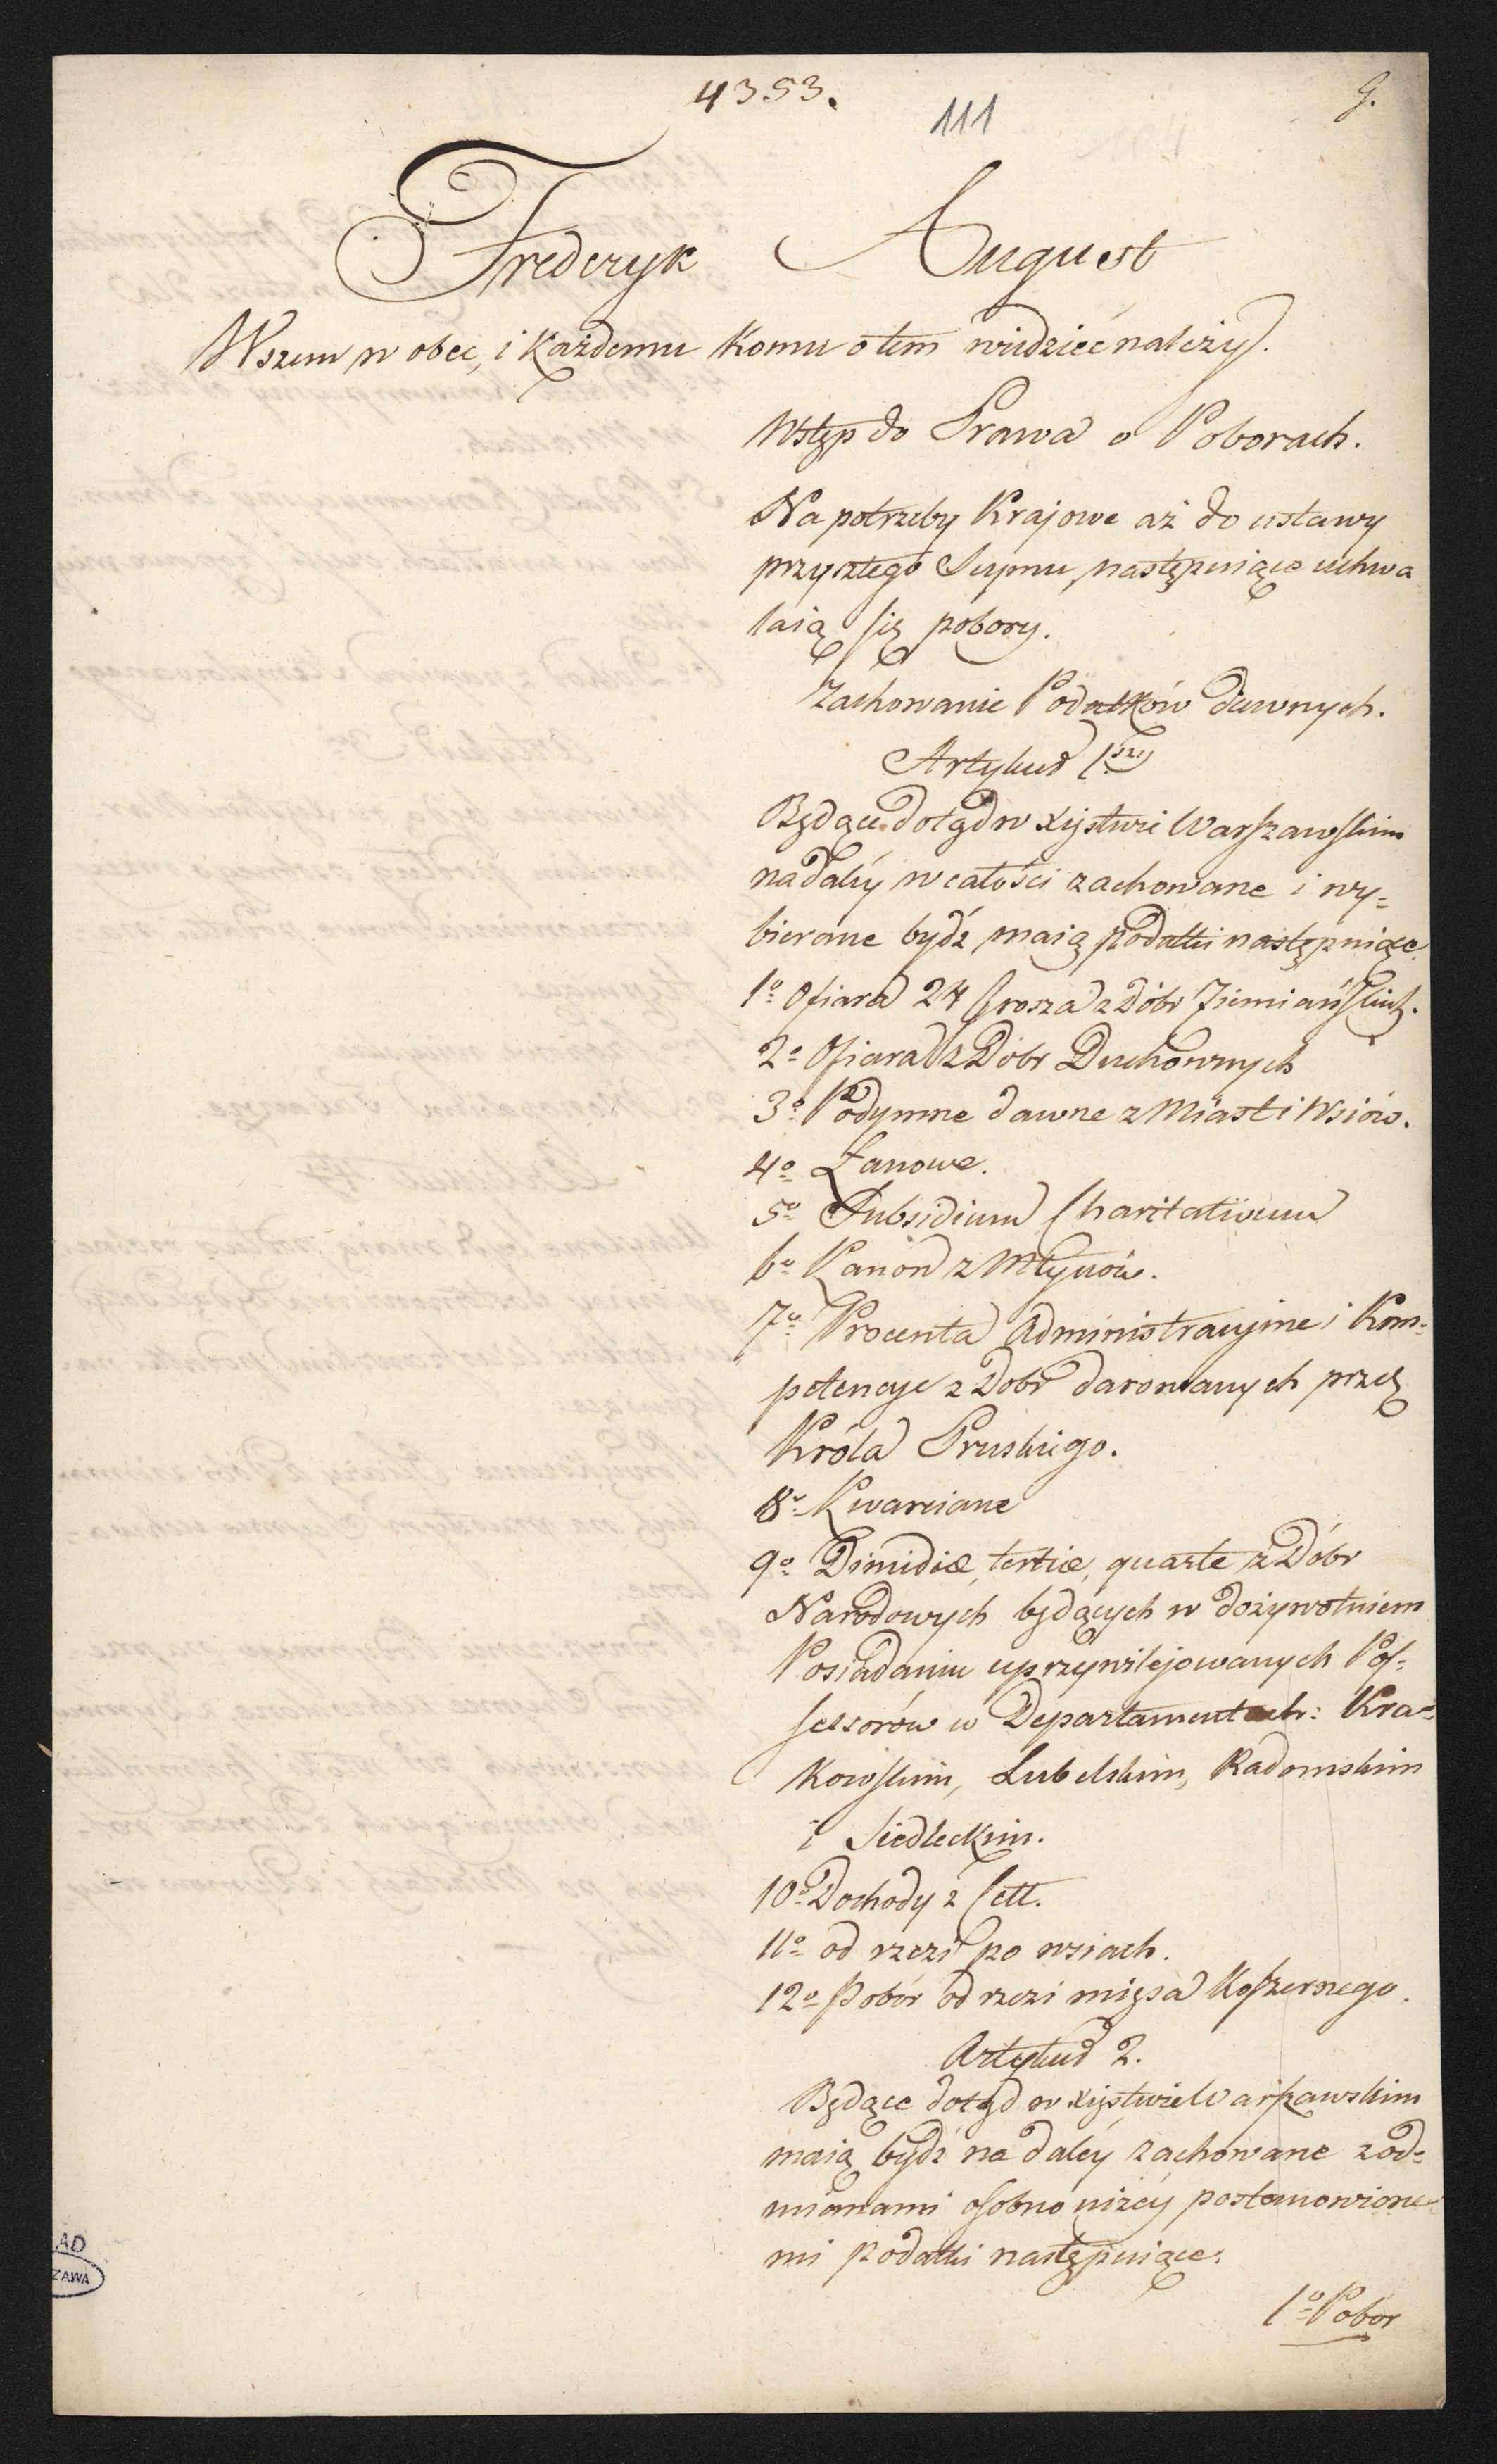 4353.
111
9.
Frederyk August
Wszem w obec, i każdemu komu o tem wiedzieć należy.
Wstęp do Prawa o Poborach.
Na potrzeby Krajowe aż do ustawy
przyszłego Seymu, następuiące uchwa
laią się pobory.
Zachowanie Podatków dawnych.
Artykuł 1szy
Będące dotąd w Xięstwie Warszawskim
nadaléy w całości zachowane i wy=
bierane bydź maią podatki następuiące
1o Ofiara 24 Grosza z Dóbr Ziemiańskich.
2o Ofiara z Dobr Duchownych
3o Podymne dawne z Miast i Wsiów.
4o Łanowe.
5o Subsidium Charitativum
6o Kanon z Młynów.
7o Procenta Administracyjne i Kom=
petencye z Dobr darowanych przez
Króla Pruskiego.
8o Kwarciane
9o Dimidiæ, tertiæ, quarte z Dóbr
Narodowych będących w dożywotniem
Posiadaniu uprzywilejowanych Pos=
sessorów w Departamentach: Kra=
kowskim, Lubelskim, Radomskim
i Siedleckim.
10o Dochody z Cell.
11o od rzezi po wsiach.
12o Pobór od rzezi mięsa Koszernego.
Artykuł 2.
Będące dotąd w Xięstwie Warszawskim
maią bydź na daléy zachowane z od=
mianami osobno niżéy postanowione
mi podatki następuiące:
1o Pobor
AD
ZAWA